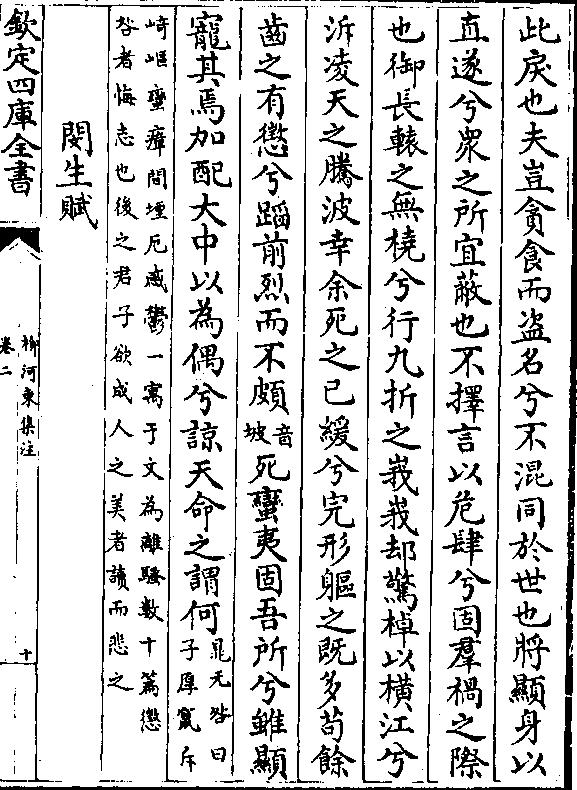 此戾也夫豈貪食而盗名兮不混同於世也將顯身以
直遂兮衆之所宜蔽也不擇言以危肆兮固羣禍之際
也御長轅之無橈兮行九折之峩峩却驚棹以橫江兮
泝凌天之騰波幸余死之已緩兮完形軀之既多苟餘
齒之有懲兮蹈前烈而不頗音坡死蠻夷固吾所兮雖顯
寵其焉加配大中以為偶兮諒天命之謂何晁无咎曰子厚竄斥
崎嶇蠻瘴間堙厄感鬱一寓于文為離騷數十篇懲
咎者悔志也後之君子欲成人之美者讀而悲之
閔生賦
欽定四庫全書
柳河東集注
卷二
十